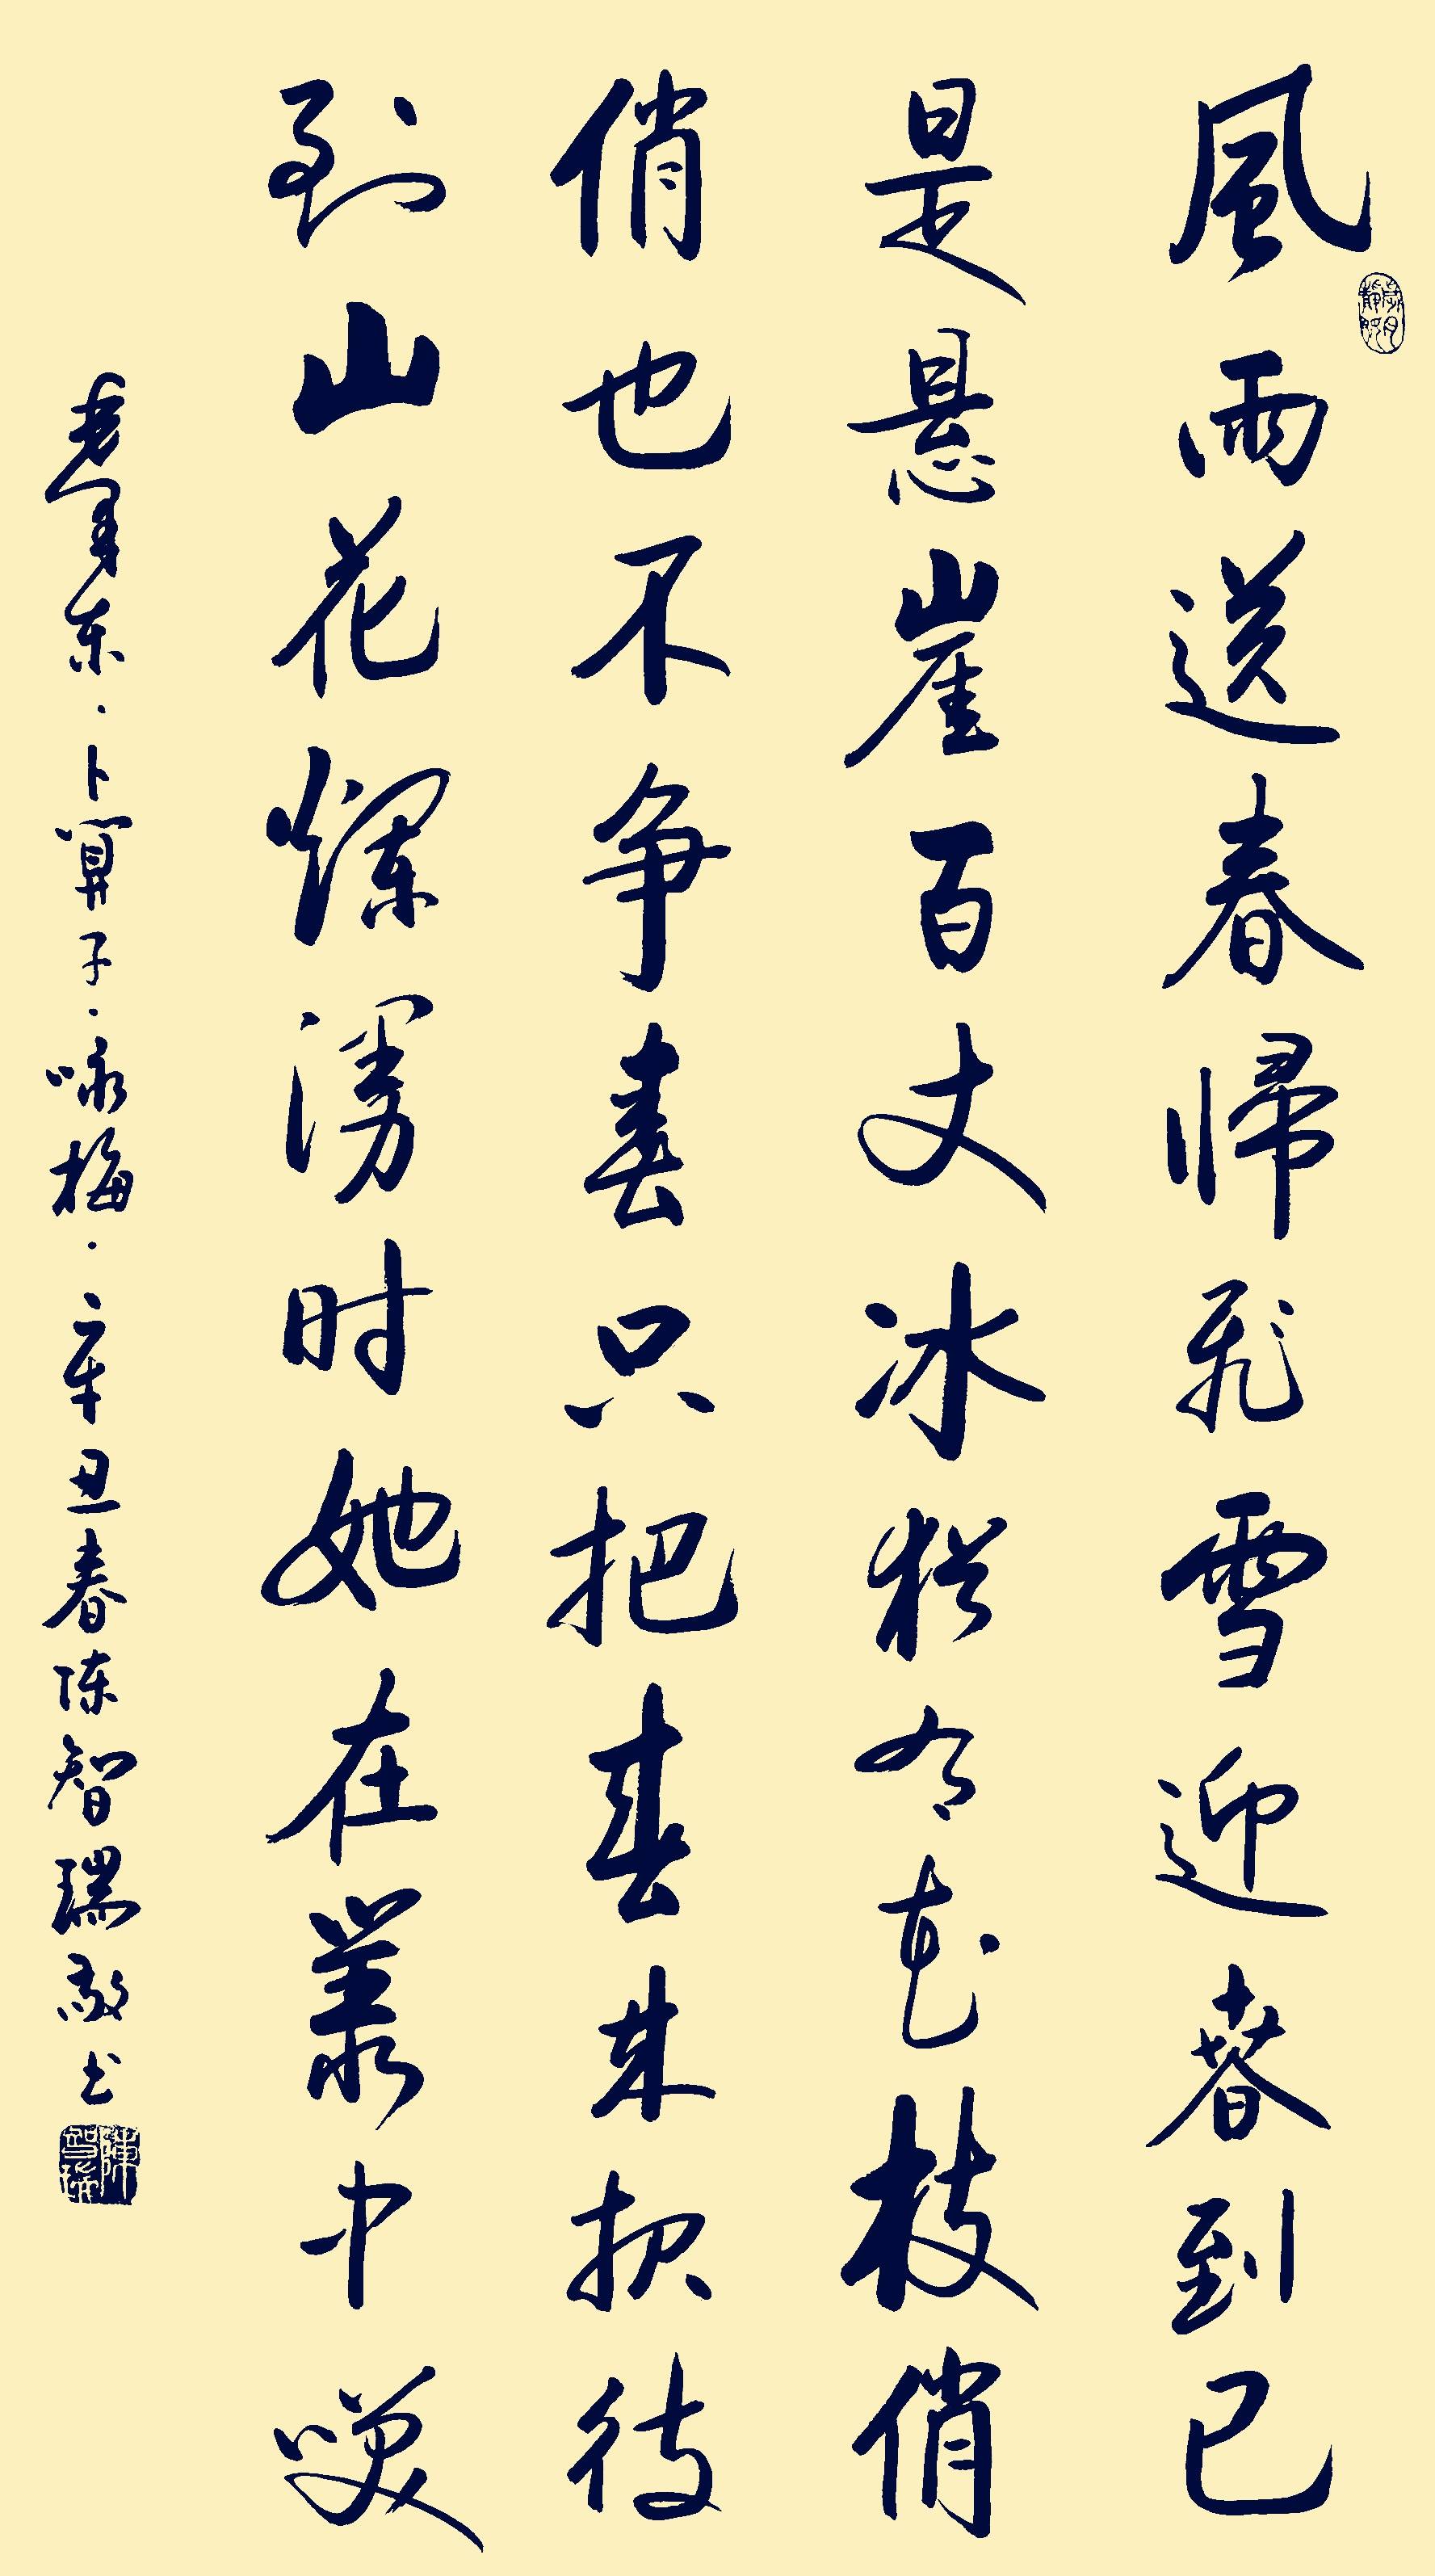 風雨送春歸飛雪迎春到已
是悬崖百丈冰犹有花枝俏
俏也不争春只把春来报待
到山花烂漫时她在叢中笑
毛泽东·卜算子·咏梅·辛丑春陈智瑞敬书
陳智瑞